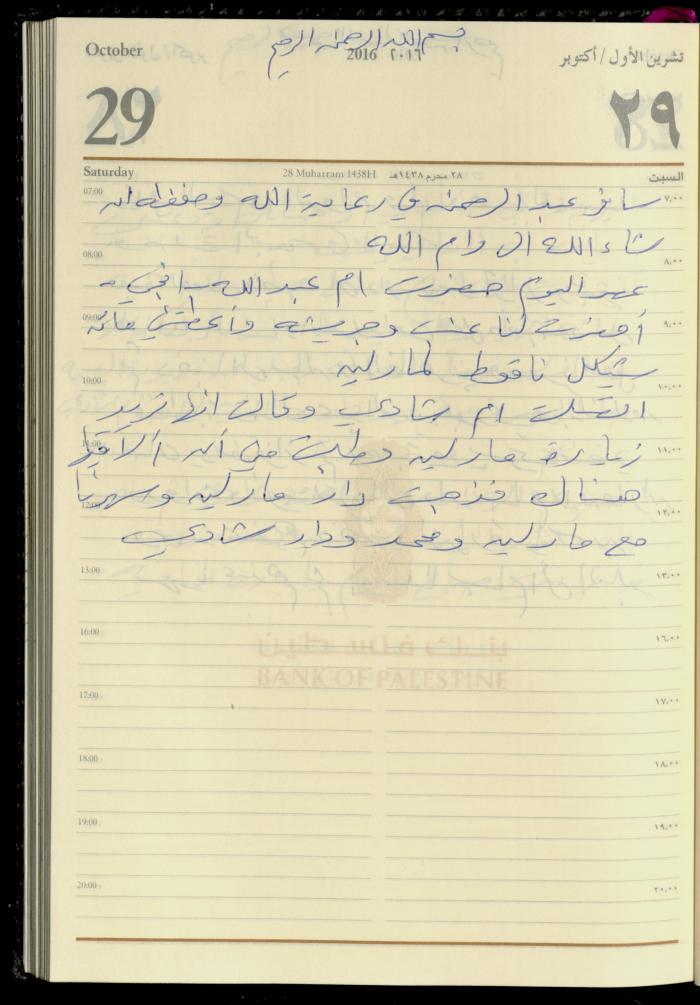 بسم الله الرحمن الرحيم
October
2016 ٢٠١٦
تشرين الأول / أكتوبر
29
٢٩
Saturday
28 Muharram 1438H
٢٨ محرم ١٤٣٨هـ
السبت
07:00 ٧،٠٠
سافر عبد الرحمن في رعاية الله وحفظه ان
شاء الله الى رام الله
08:00 ٨،٠٠
عصر اليوم حضرت ام عبد الله
09:00 ٩،٠٠
أحضرت لنا عنب وجريشه وأعطتني مائة
شيكل ناقوط لمارلين
10:00 ١٠،٠٠
اتصلت ام شادي وقالت انها تريد
11:00 ١١،٠٠
زيارة مارلين وطلبت مني أن ألاقيها
هناك فذهبت دار مارلين وسهرنا
12:00 ١٢،٠٠
مع مارلين ومحمد ودار شادي
13:00 ١٣،٠٠
16:00 ١٦،٠٠
بنك فلسطين
BANK OF PALESTINE
17:00 ١٧،٠٠
18:00 ١٨،٠٠
19:00 ١٩،٠٠
20:00 ٢٠،٠٠